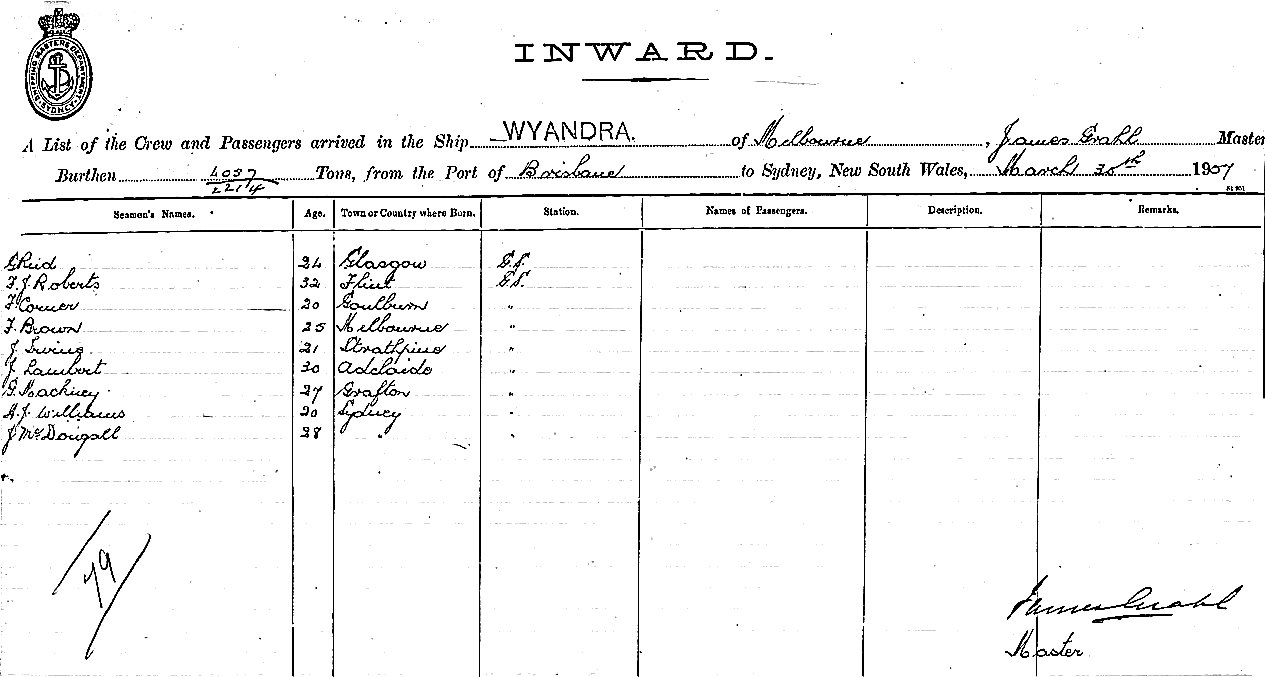 SHIPPING MASTERS DEPARTMENT SYDNEY
INWARD.
A List of the Crew and Passengers arrived in the Ship WYANDRA. of Melbourne, James Grahl Master
Burthen 4057 / 2214 Tons, from the Port of Brisbane to Sydney, New South Wales, March 30th 1907
Seamen's Names. Age. Town or Country where Born. Station. Names of Passengers. Description. Remarks.
G Reid 24 Glasgow G.S.
F. J. Roberts 32 Flint G.S.
F. Corner 20 Goulburn "
F. Brown 25 Melbourne "
J. Irving 21 Strathpine "
J. Lambert 30 Adelaide "
G. 27 Grafton "
A. J. Williams 20 Sydney "
J McDougall 28 " "
79
James Grahl
Master